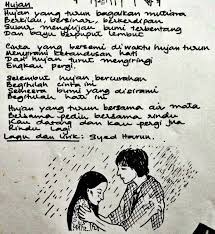 Hujan
Hujan yang turun bagaikan mutiara
Berkilau, bersinar, berkerdipan
Subur menghijau bumi terbentang
Dan bayu berpuput lembut
Cinta yang bersemi di waktu hujan turun
Menyirami ketandusan hati
Dan hujan turut mengiringi
Engkau pergi
Selembut hujan bercurahan
Begitulah cinta ini
Semesra bumi yang disirami
Begitulah hati ini
Hujan yang turun bersama air mata
Bersama pedih bersama rindu
Kau datang dan kau pergi jua
Rindu lagi
Lagu dan lirik: Syed Harun.